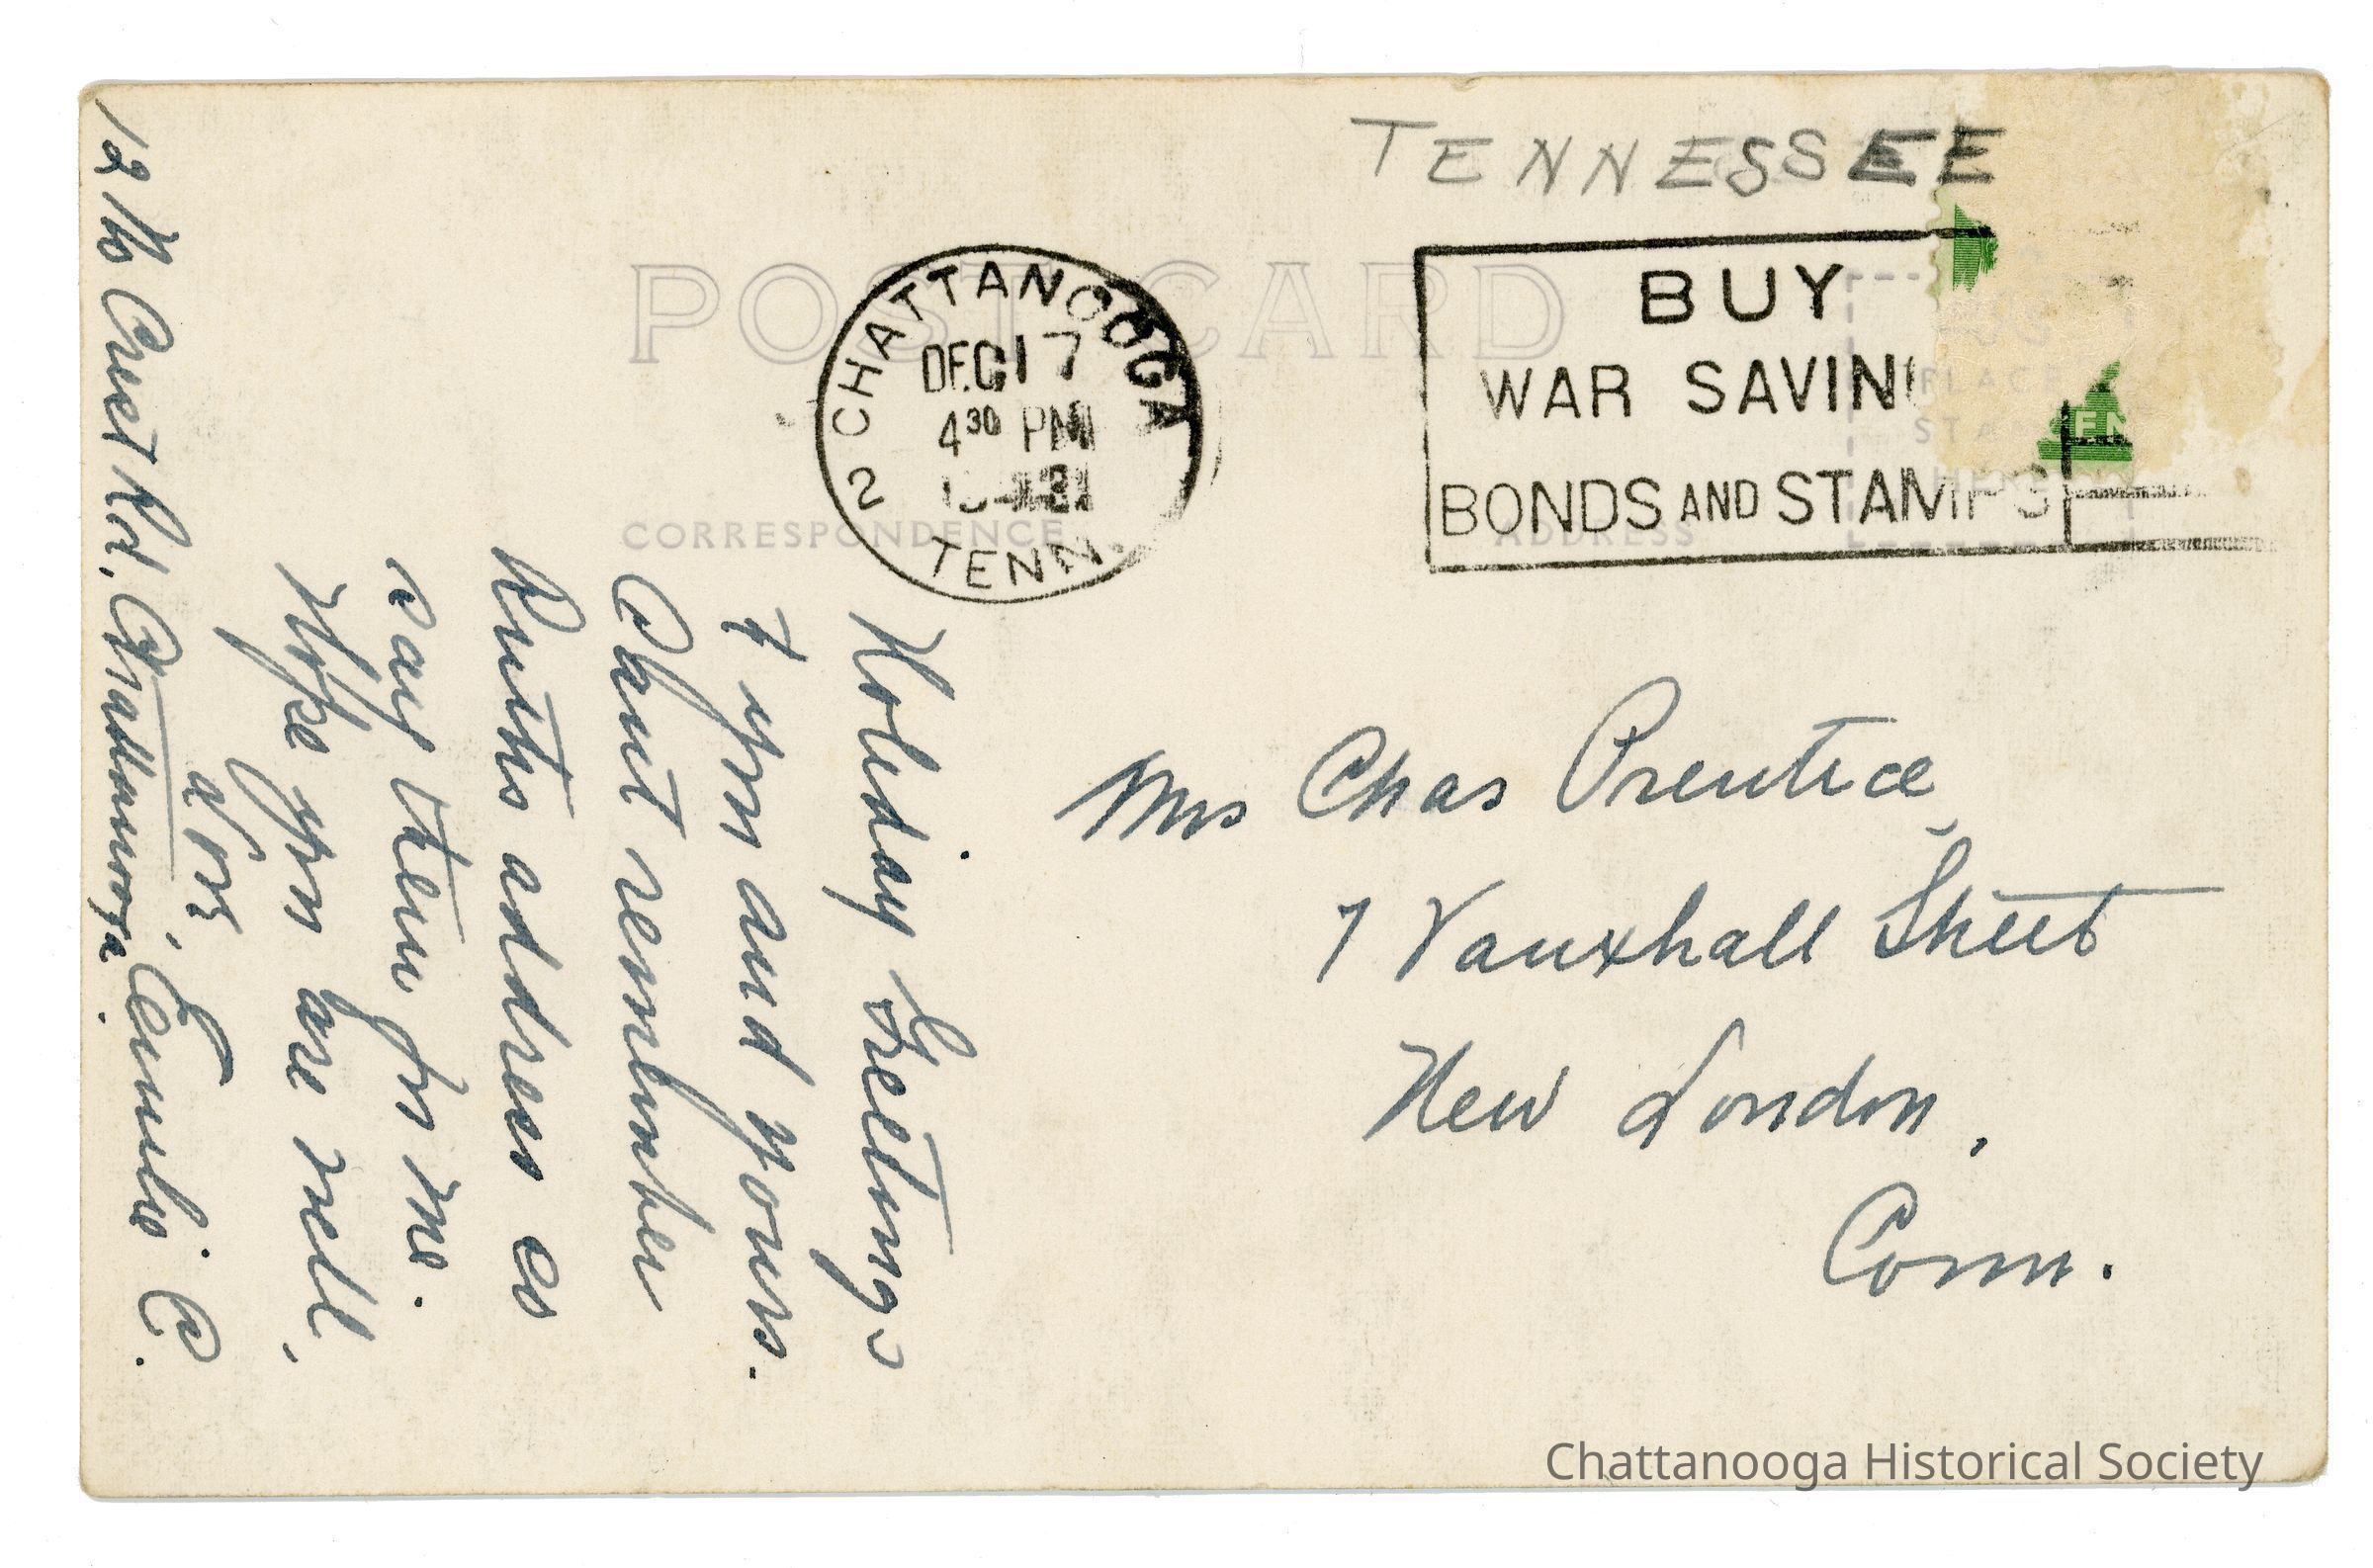 TENNESSEE
POST CARD
CHATTANOOGA
DEC 17
4 30 PM
2
TENN.
BUY
WAR SAVIN
BONDS AND STAMPS
PLACE
STAMP
HERE
CORRESPONDENCE
ADDRESS
Mrs Chas Prentice,
7 Vauxhall Street
New London,
Conn.
Holiday Greetings
to you and yours.
Can't remember
Ruth's address so
say them for me.
Hope you are well,
Crest Rd. Chattanooga
Chattanooga Historical Society